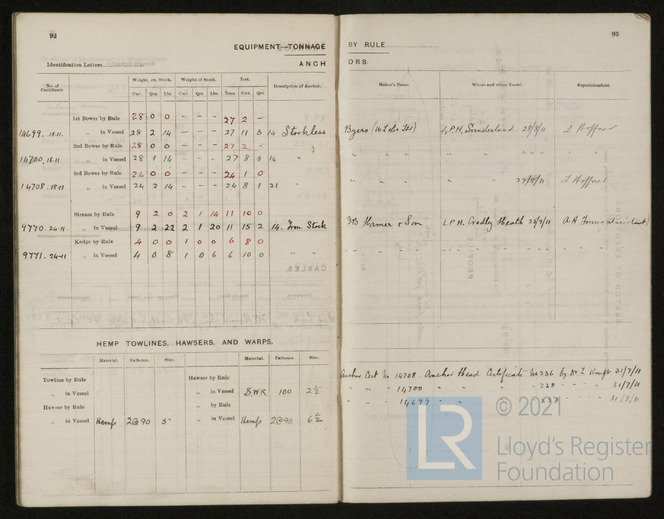 92
EQUIPMENT TONNAGE
Identification Letters
ANCH
No. of Certificate
Weight, ex. Stock.
Weight of Stock.
Test.
Description of Anchor.
Cwt. Qrs. Lbs. Cwt. Qrs. Lbs. Tons Cwt. Qrs.
1st Bower by Rule 28 0 0 - - - 27 2 -
14699. 18.11 „ in Vessel 28 2 14 - - - 27 11 3 14 Stockless
2nd Bower by Rule 28 0 0 - - - 27 2 -
14700, 18.11 „ in Vessel 28 1 14 - - - 27 8 3 14 „
3rd Bower by Rule 24 0 0 - - - 24 1 0
14708. 18.11 „ in Vessel 24 2 14 - - - 24 8 1 21
Stream by Rule 9 2 0 2 1 14 11 10 0
9770. 24-11 „ in Vessel 9 2 22 2 1 20 11 15 2 14. Iron Stock
Kedge by Rule 4 0 0 1 0 0 6 8 0
9771. 24-11 „ in Vessel 4 0 8 1 0 6 6 10 0 „ „
HEMP TOWLINES, HAWSERS, AND WARPS.
Material. Fathoms. Size. Material. Fathoms. Size.
Towline by Rule Hawser by Rule
„ in Vessel „ in Vessel S.W.R. 100 2 1/2
Hawser by Rule „ by Rule
„ in Vessel Hemp 2@90 5 „ in Vessel Hemp 2@90 6 1/2
93
BY RULE
ORS.
Maker's Name. Where and when Tested. Superintendent.
Byers L.P.H. Sunderland 28/8/11 L Hoffner
„ „ „ „ „ „
„ „ „ 29/8/11 L Hoffner
Hamer & Son L.P.H. Cradley Heath 25/9/11 A H (Assistant)
„ „ „ „ „ „ „
Anchor Cert No 14708 Anchor Head Certificate No 236 by 31/7/11
„ „ „ 14700 „ „ 238 „ „ 31/7/11
„ „ „ 14699 „ „ 237 „ „ 31/7/11
© 2021
LR
Lloyd's Register
Foundation